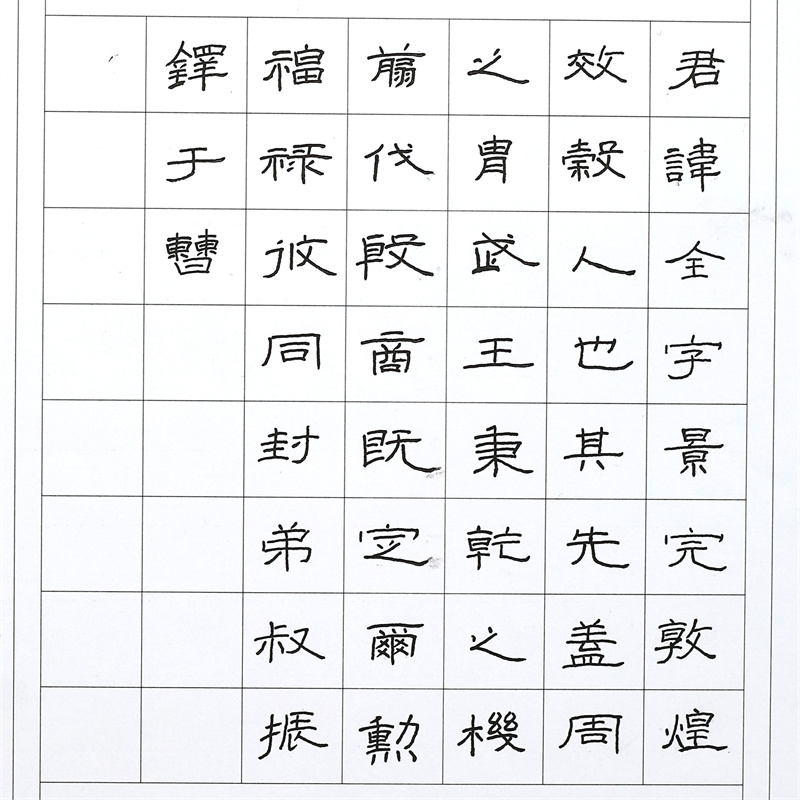 君諱全字景完敦煌
效穀人也其先蓋周
之胄武王秉乾之機
翦伐殷商既定爾勳
福禄攸同封弟叔振
鐸于𣍘